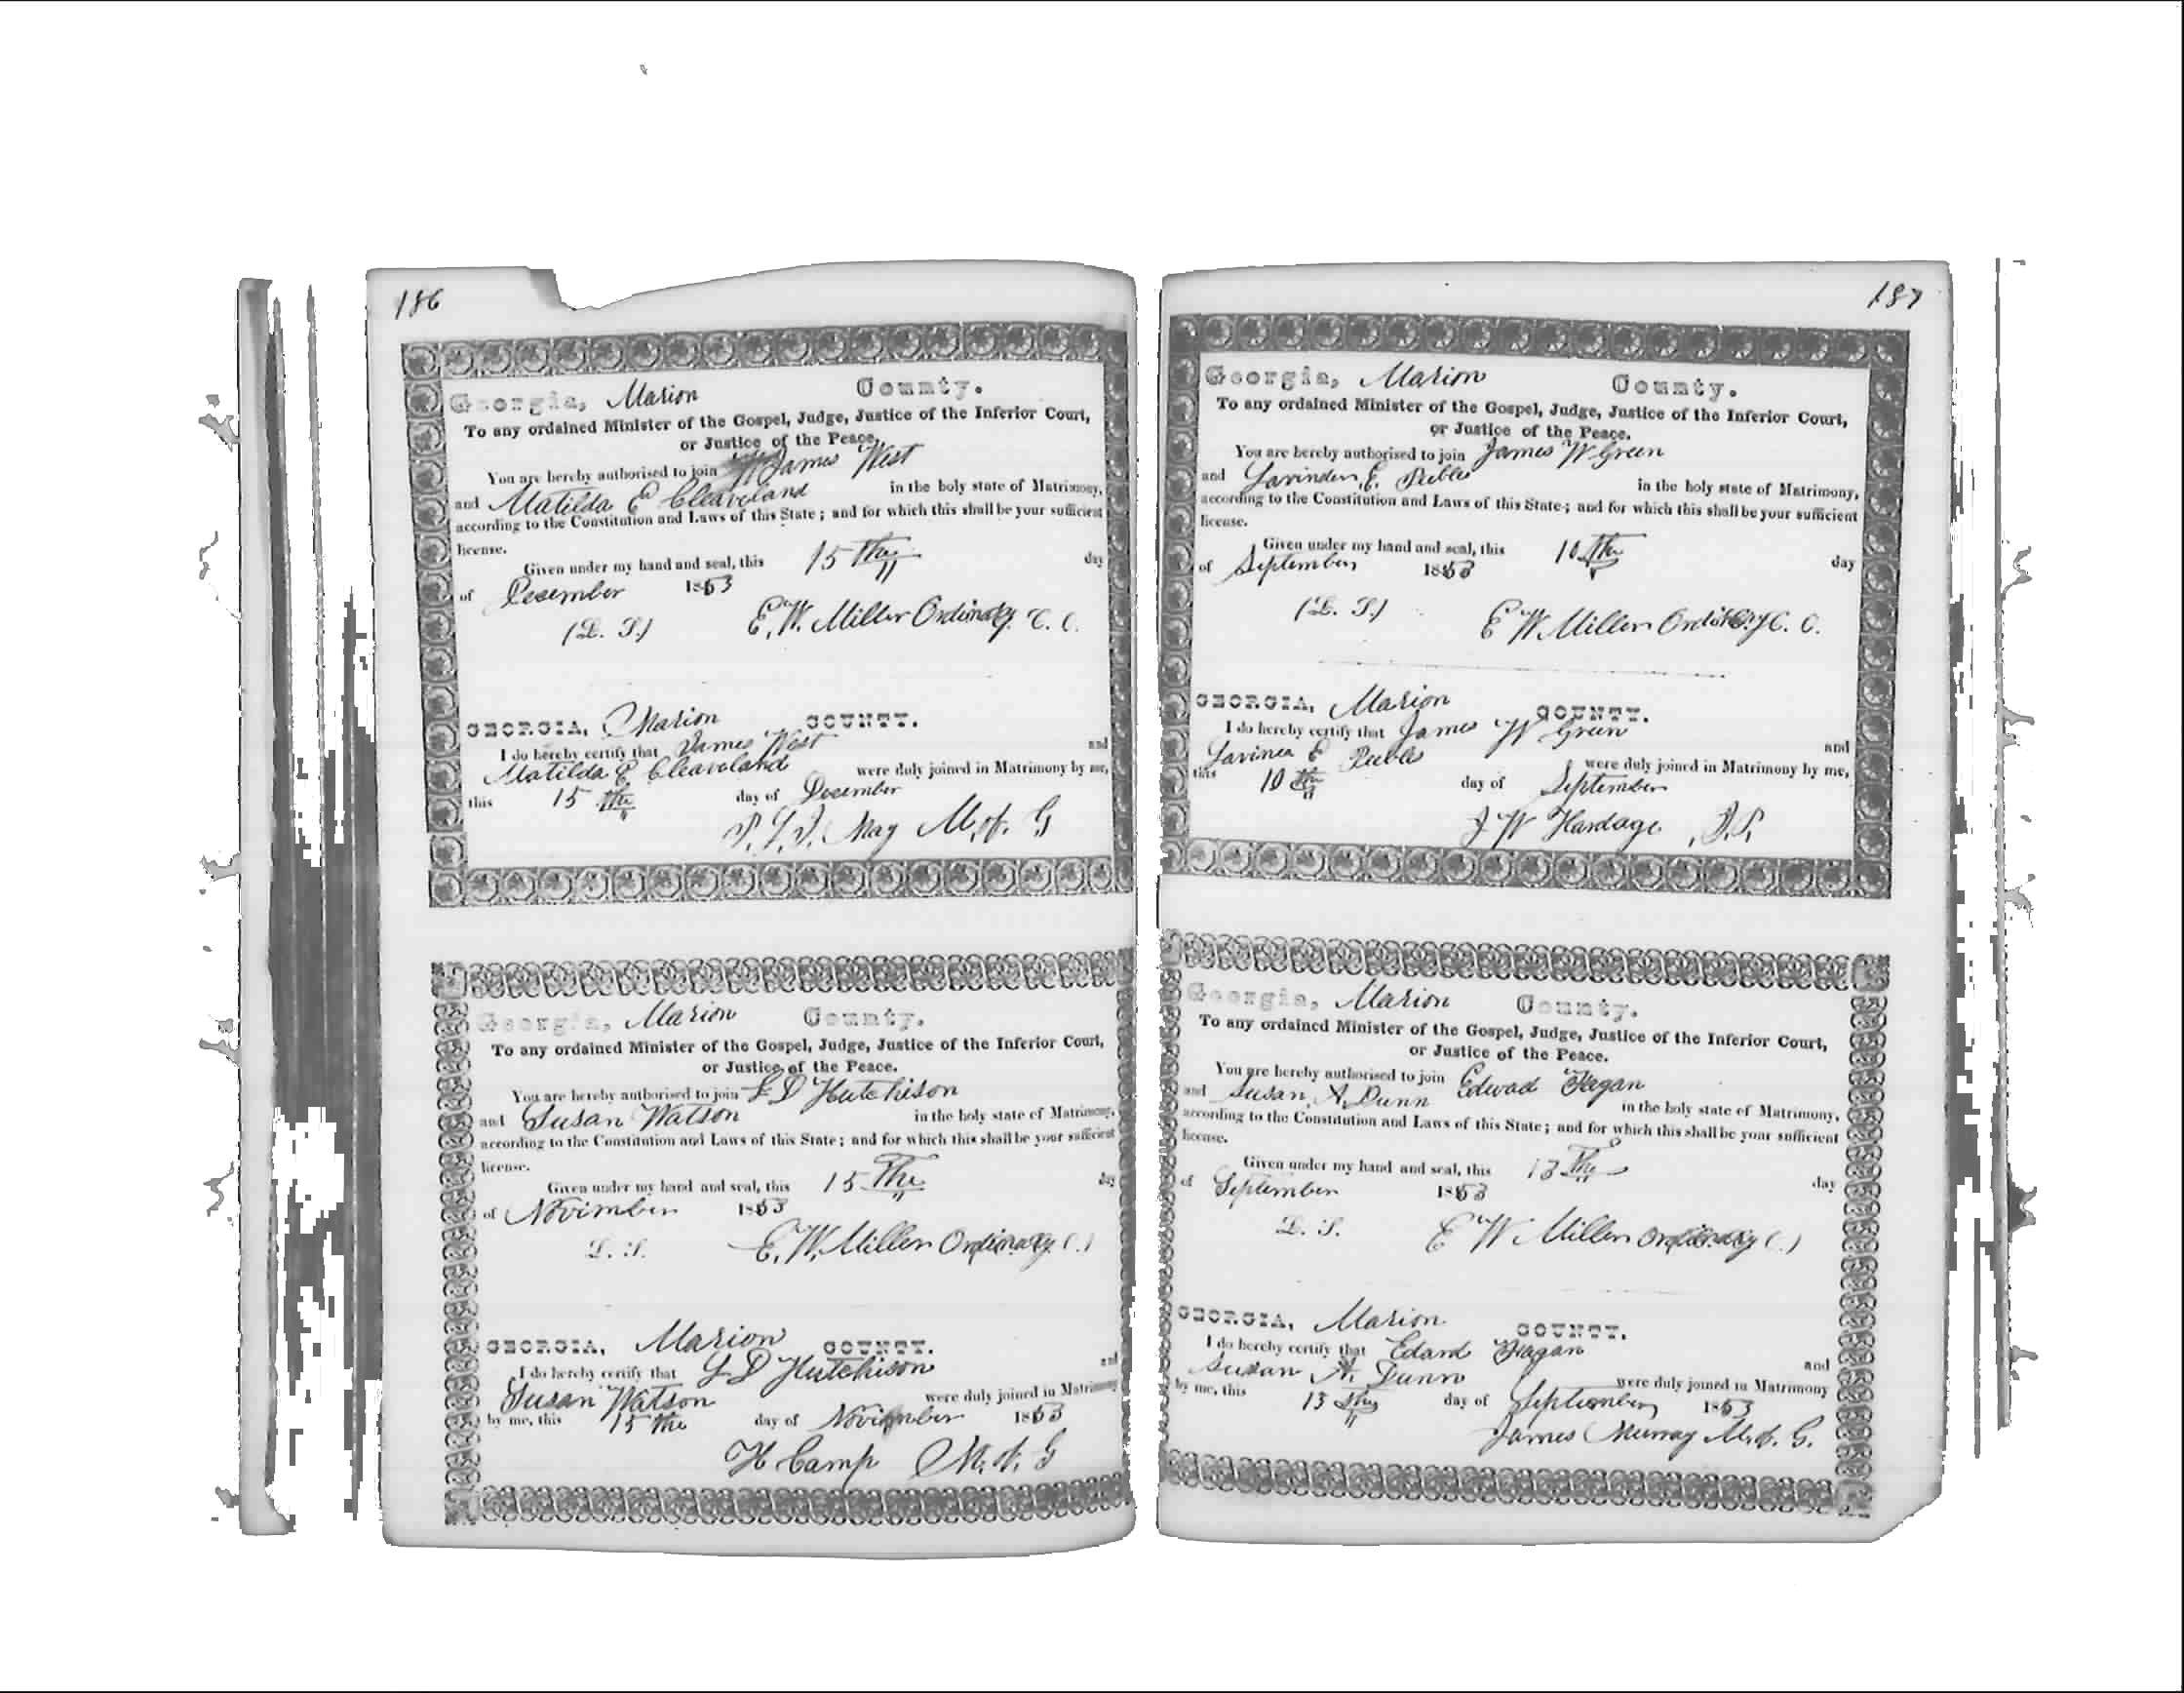 186
Georgia, Marion County.
To any ordained Minister of the Gospel, Judge, Justice of the Inferior Court,
or Justice of the Peace.
You are hereby authorised to join James West
and Matilda E Cleaveland in the holy state of Matrimony,
according to the Constitution and Laws of this State; and for which this shall be your sufficient
license.
Given under my hand and seal, this 15th day
of December 1853
(L. S.) E. W. Miller Ordinary C. C.
GEORGIA, Marion COUNTY.
I do hereby certify that James West and
Matilda E Cleaveland were duly joined in Matrimony by me,
this 15th day of December
May M. of. G
Georgia, Marion County.
To any ordained Minister of the Gospel, Judge, Justice of the Inferior Court,
or Justice of the Peace.
You are hereby authorised to join L D Hutchison
and Susan Watson in the holy state of Matrimony,
according to the Constitution and Laws of this State; and for which this shall be your sufficient
license.
Given under my hand and seal, this 15th day
of Novimber 1853
L. S. E. W. Miller Ordinary
GEORGIA, Marion COUNTY.
I do hereby certify that L D Hutchison and
Susan Watson were duly joined in Matrimony
by me, this 15 the day of Novimber 1853
H Camp M. of. G
187
Georgia, Marion County.
To any ordained Minister of the Gospel, Judge, Justice of the Inferior Court,
or Justice of the Peace.
You are hereby authorised to join James W Green
and E. in the holy state of Matrimony,
according to the Constitution and Laws of this State; and for which this shall be your sufficient
license.
Given under my hand and seal, this 10th day
of September 1853
(L. S.) E W Miller C. C.
GEORGIA, Marion COUNTY.
I do hereby certify that James W Green and
Lavinea E were duly joined in Matrimony by me,
this 10th day of September
J W Hardage J. P.
Georgia, Marion County.
To any ordained Minister of the Gospel, Judge, Justice of the Inferior Court,
or Justice of the Peace.
You are hereby authorised to join Edwad Hagan
and Susan A. Dunn in the holy state of Matrimony,
according to the Constitution and Laws of this State; and for which this shall be your sufficient
license.
Given under my hand and seal, this 13th day
of September 1853
L. S. E W Miller Ordinary
GEORGIA, Marion COUNTY.
I do hereby certify that Edard Hagan and
Susan A. Dunn were duly joined in Matrimony
by me, this 13th day of September 1853
James Murray M. of. G.